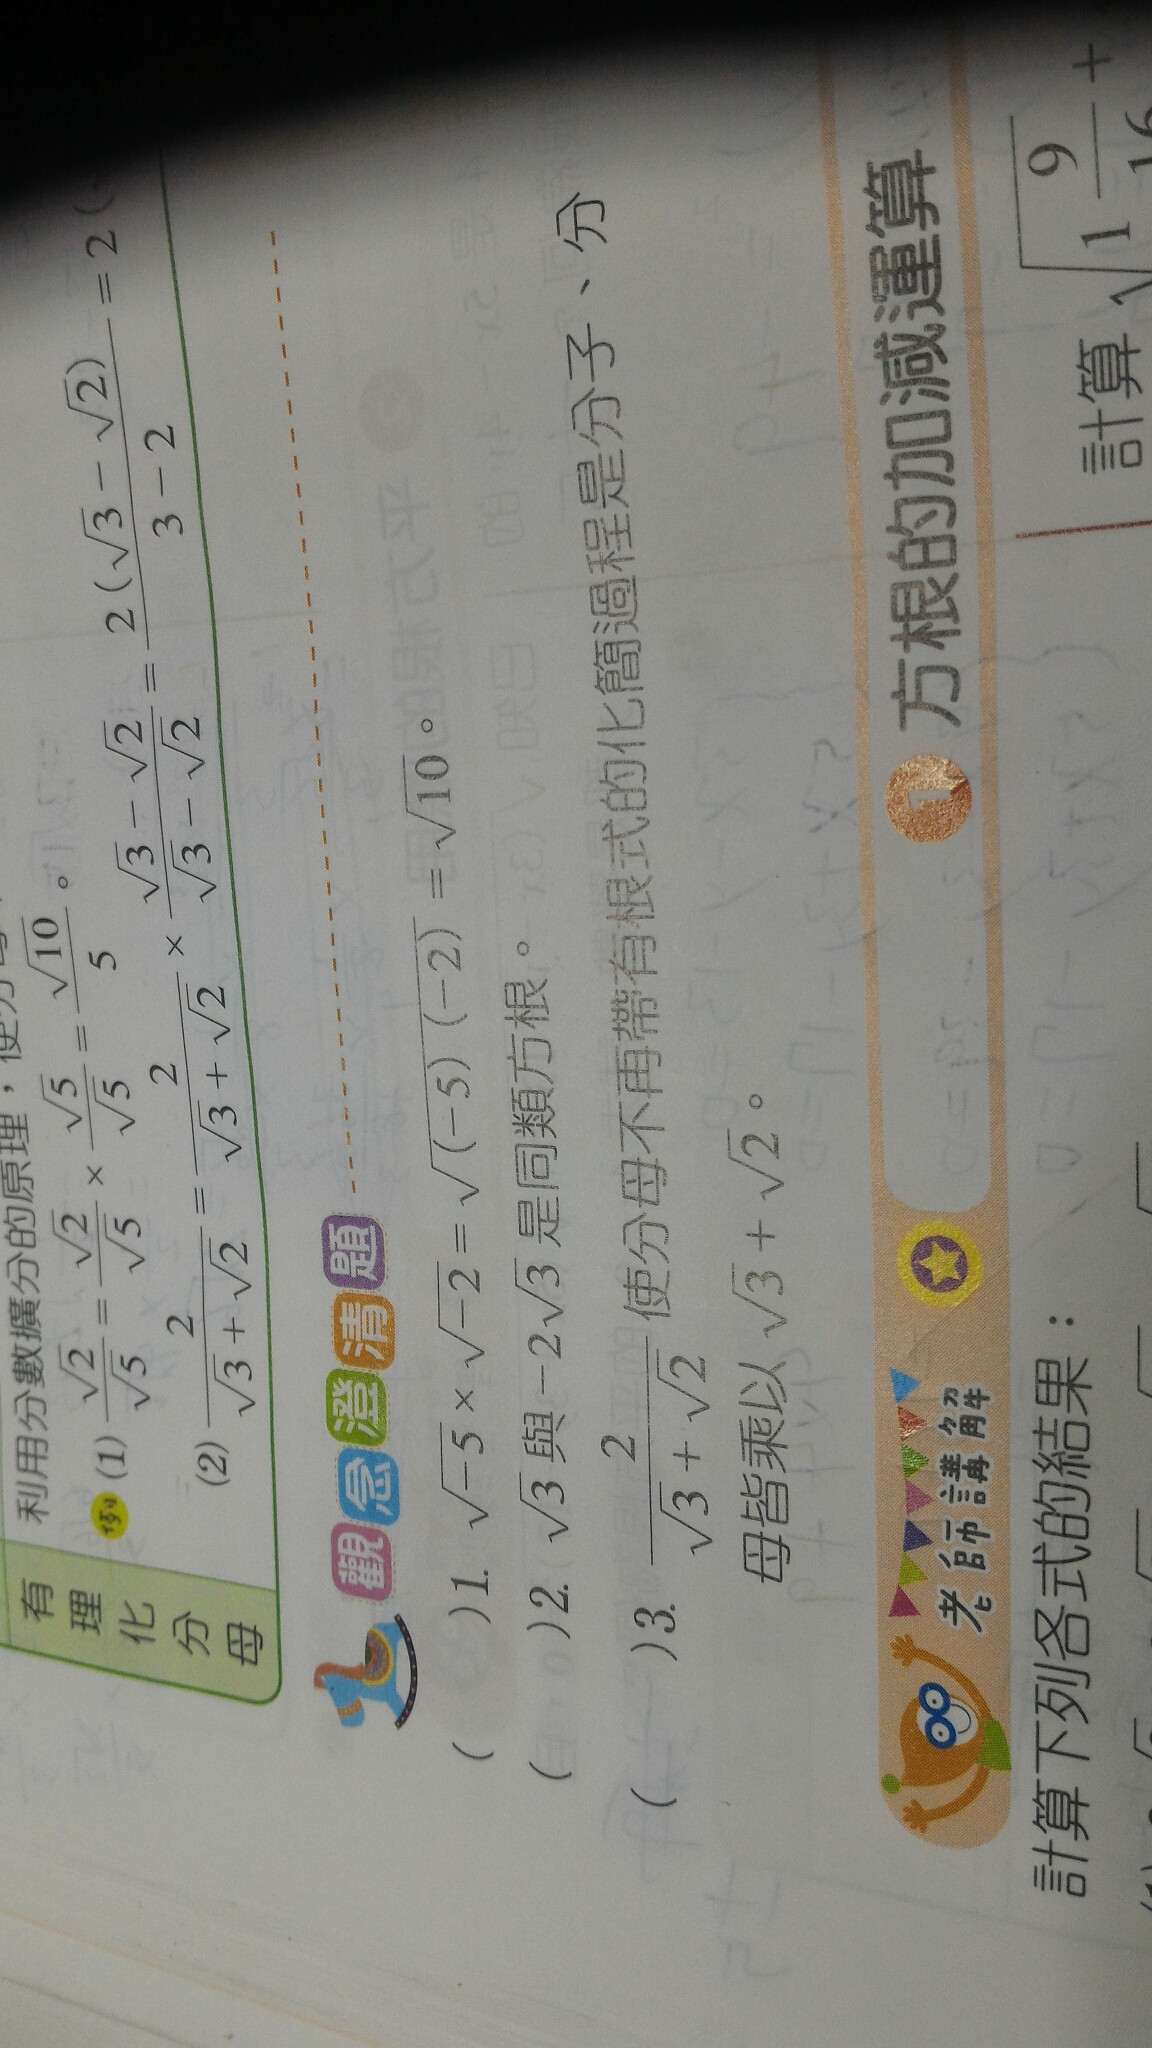 利用分數擴分的原理，使分母
有理化分母
例 (1) √2/√5 = √2/√5 × √5/√5 = √10/5。
(2) 2/(√3 + √2) = 2/(√3 + √2) × (√3 − √2)/(√3 − √2) = 2(√3 − √2)/(3 − 2) = 2(
觀急澄清題
( )1. √−5 × √−2 = √(−5)(−2) = √10。
( )2. √3 與 −2√3 是同類方根。
( )3. 2/(√3 + √2) 使分母不再帶有根式的化簡過程是分子、分
母皆乘以 √3 + √2。
老師講解 1 方根的加減運算
計算下列各式的結果：
計算 √(1 9/16) +